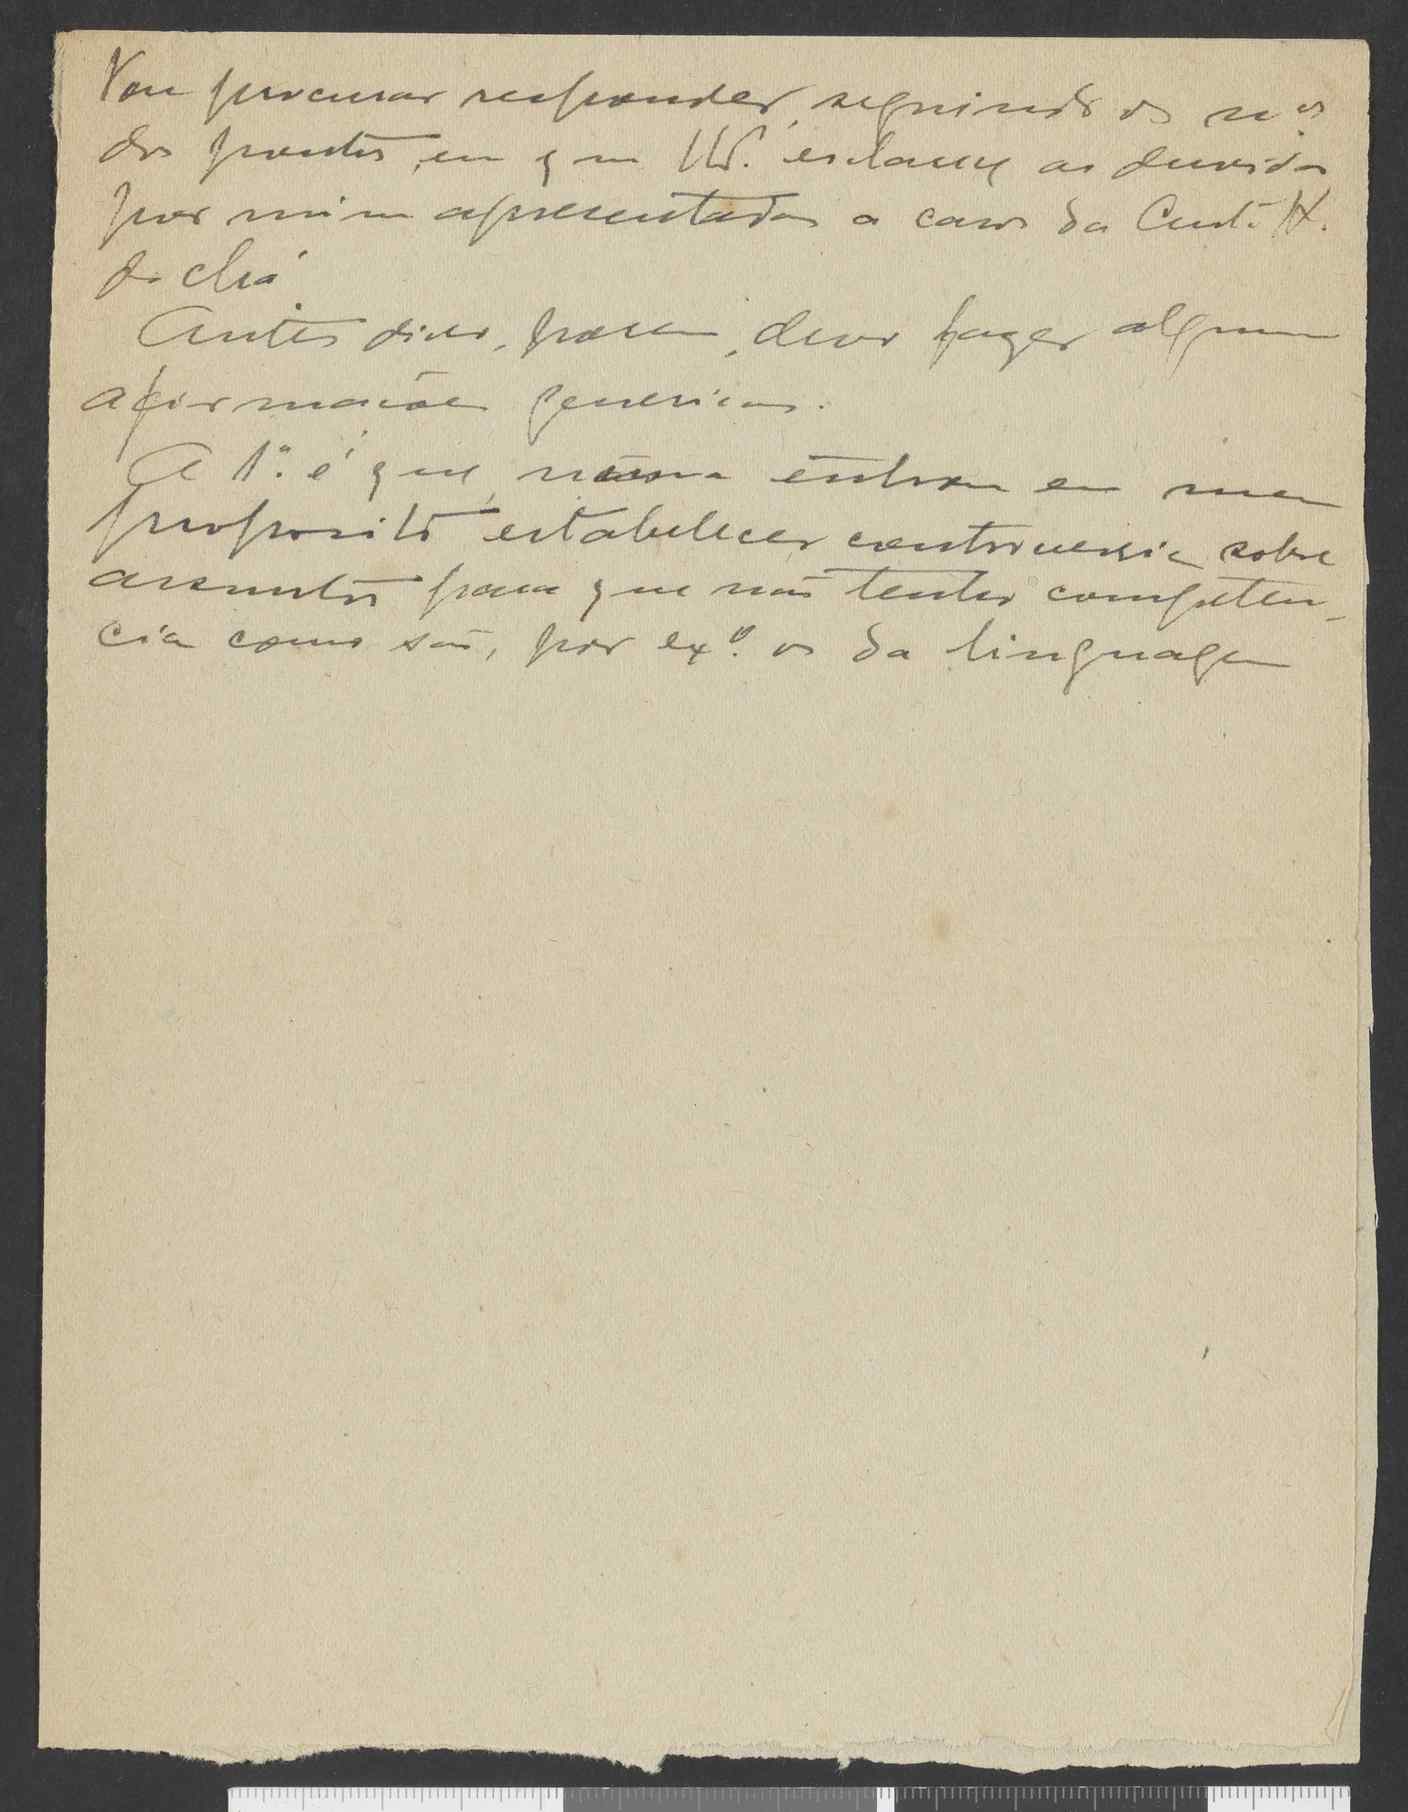 Vou procurar responder, seguindo os nos
dos pontos, em q em V. esclarece as duvidas
por mim apresentadas a
do chá
Antes disso, porem, devo fazer algumas
afirmações genericas.
A 1ª. é que nunca entrou em meu
proposito estabelecer controversia sobre
assuntos para que não tenho competen-
cia como são, por exº. os da linguagem